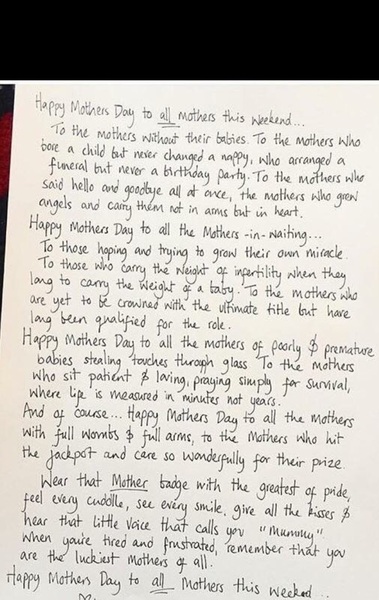 Happy Mothers Day to all mothers this weekend...
To the mothers without their babies. To the mothers who
bore a child but never changed a nappy, who arranged a
funeral but never a birthday party. To the mothers who
said hello and goodbye all at once, the mothers who grew
angels and carry them not in arms but in heart.
Happy Mothers Day to all the Mothers-in-waiting...
To those hoping and trying to grow their own miracle.
To those who carry the weight of infertility when they
long to carry the weight of a baby. To the mothers who
are yet to be crowned with the ultimate title but have
long been qualified for the role.
Happy Mothers Day to all the mothers of poorly & premature
babies stealing touches through glass To the mothers
who sit patient & loving, praying simply for survival,
where life is measured in minutes not years.
And of course... Happy Mothers Day to all the mothers
with full wombs & full arms, to the Mothers who hit
the jackpot and care so wonderfully for their prize.
Wear that Mother badge with the greatest of pride,
feel every cuddle, see every smile, give all the kisses &
hear that little voice that calls you "Mummy".
When you're tired and frustrated, remember that you
are the luckiest Mothers of all.
Happy Mothers Day to all Mothers this weekend...